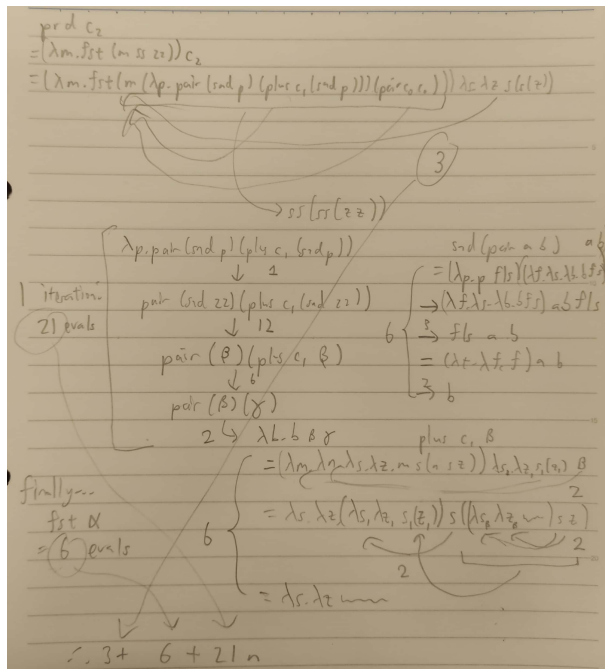 prd c₂
= (λm. fst (m ss zz)) c₂
= (λm. fst (m (λp. pair (snd p) (plus c₁ (snd p))) (pair c₀ c₀))) λs. λz s(s(z))
3
ss(ss(zz))
λp. pair (snd p) (plus c₁ (snd p))
↓ 1
pair (snd zz) (plus c₁ (snd zz))
↓ 12
pair (β) (plus c₁ β)
↓ 6
pair (β) (γ)
2 ↳ λb. b β γ
1 iteration:
21 evals
snd (pair a b) a b
= (λp. p fls) (λf. λs. λb. b f s)
→ (λf. λs. λb. b f s) a b fls
6 3→ fls a b
= (λt. λf. f) a b
2→ b
plus c₁ β
= (λm. λn. λs. λz. m s (n s z)) λs₁. λz₁ s₁(z₁) β
2
= λs. λz (λs₁ λz₁ s₁(z₁)) s ((λs₀ λz₀ ~) s z)
2
2
6
= λs. λz ~
finally...
fst α
= 6 evals
∴ 3 + 6 + 21 n